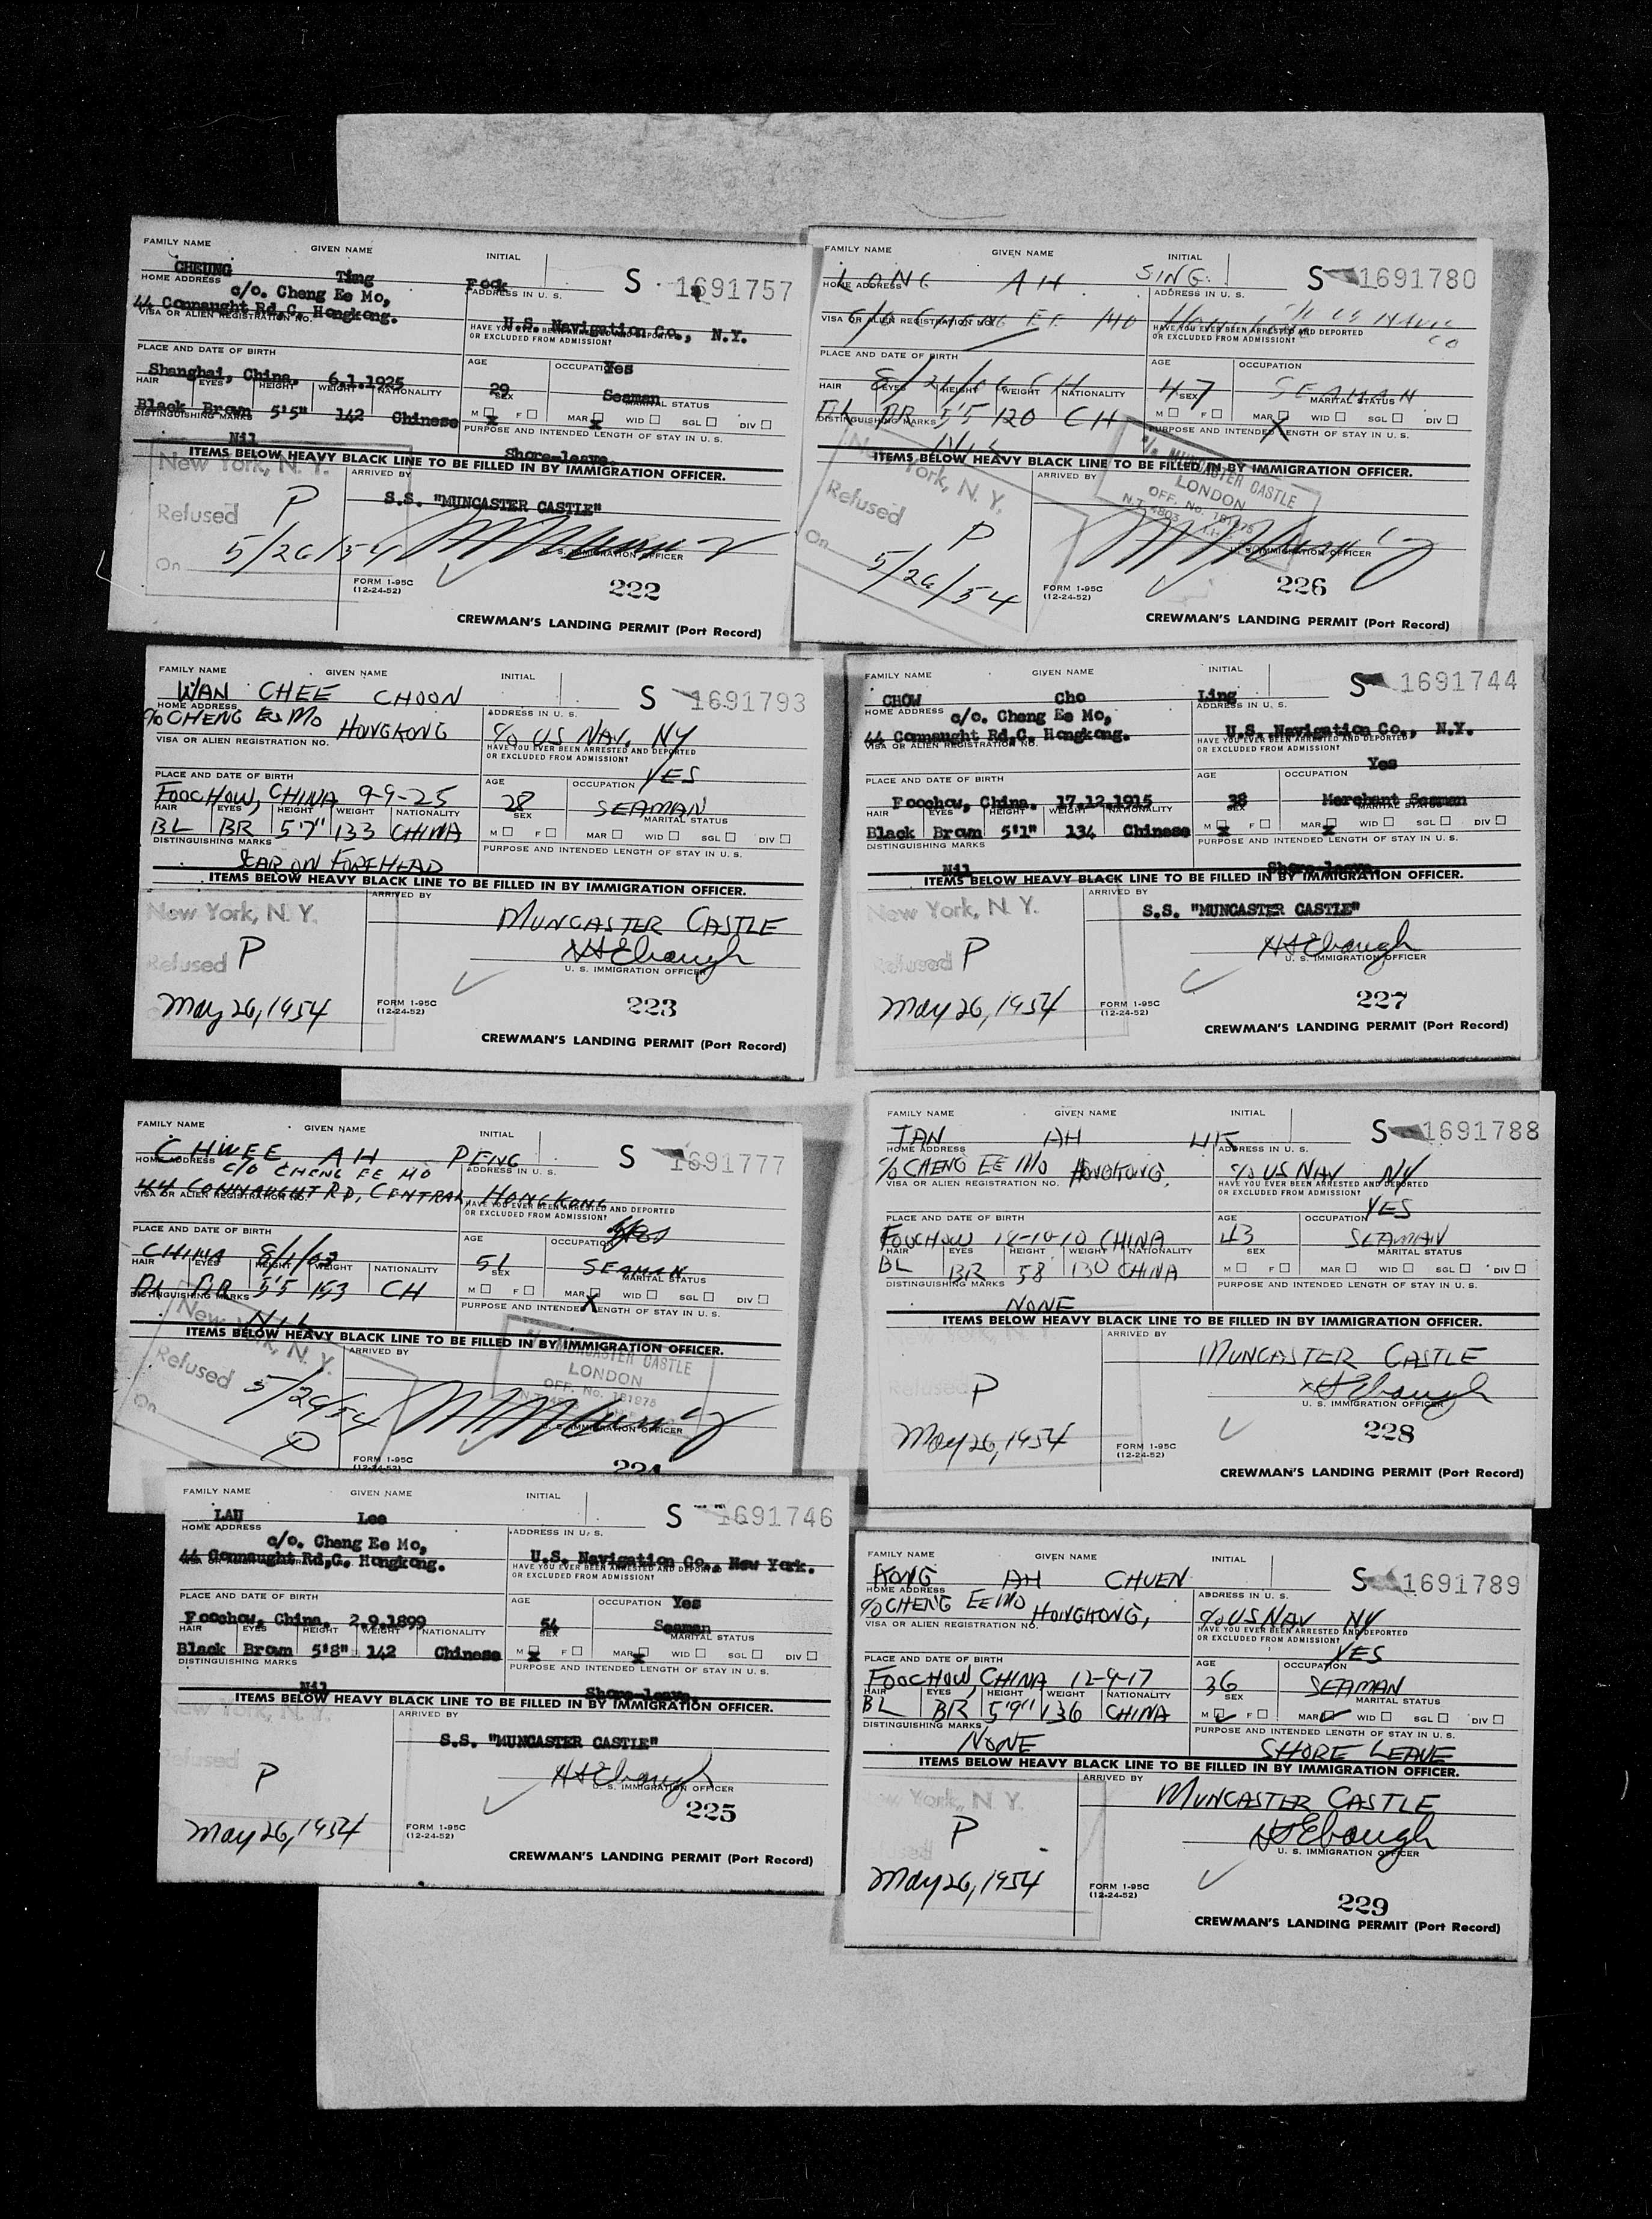 FAMILY NAME GIVEN NAME INITIAL
CHEUNG Ting Fock S 1691757
HOME ADDRESS ADDRESS IN U. S.
c/o. Cheng Ee Mo,
44 Connaught Rd,C, Hongkong. U.S. Navigation Co., N.Y.
VISA OR ALIEN REGISTRATION NO. HAVE YOU EVER BEEN ARRESTED AND DEPORTED
OR EXCLUDED FROM ADMISSION?
Yes
PLACE AND DATE OF BIRTH AGE OCCUPATION
Shanghai, China. 6.1.1925 29 Seaman
HAIR EYES HEIGHT WEIGHT NATIONALITY SEX MARITAL STATUS
Black Brown 5'5" 142 Chinese M x F MAR x WID SGL DIV
DISTINGUISHING MARKS PURPOSE AND INTENDED LENGTH OF STAY IN U. S.
Nil Shore-leave
ITEMS BELOW HEAVY BLACK LINE TO BE FILLED IN BY IMMIGRATION OFFICER.
New York, N. Y. ARRIVED BY
S.S. "MUNCASTER CASTLE"
Refused P
On 5/26/54
U. S. IMMIGRATION OFFICER
FORM I-95C
(12-24-52)
222
CREWMAN'S LANDING PERMIT (Port Record)
FAMILY NAME GIVEN NAME INITIAL
LONG AH SING S 1691780
HOME ADDRESS ADDRESS IN U. S.
C/O CHENG EE MO C/O US NAVIG CO
VISA OR ALIEN REGISTRATION NO. HAVE YOU EVER BEEN ARRESTED AND DEPORTED
OR EXCLUDED FROM ADMISSION?
PLACE AND DATE OF BIRTH AGE OCCUPATION
8/21/06 CH 47 SEAMAN
HAIR EYES HEIGHT WEIGHT NATIONALITY SEX MARITAL STATUS
BL BR 5'5 120 CH M F MAR X WID SGL DIV
DISTINGUISHING MARKS PURPOSE AND INTENDED LENGTH OF STAY IN U. S.
NIL
ITEMS BELOW HEAVY BLACK LINE TO BE FILLED IN BY IMMIGRATION OFFICER.
New York, N. Y. ARRIVED BY
MUNCASTER CASTLE
LONDON
OFF. No. 181975
Refused P
On 5/26/54
U. S. IMMIGRATION OFFICER
FORM I-95C
(12-24-52)
226
CREWMAN'S LANDING PERMIT (Port Record)
FAMILY NAME GIVEN NAME INITIAL
WAN CHEE CHOON S 1691793
HOME ADDRESS ADDRESS IN U. S.
c/o CHENG EE MO HONGKONG c/o US NAV. NY
VISA OR ALIEN REGISTRATION NO. HAVE YOU EVER BEEN ARRESTED AND DEPORTED
OR EXCLUDED FROM ADMISSION?
YES
PLACE AND DATE OF BIRTH AGE OCCUPATION
FOOCHOW, CHINA 9-9-25 28 SEAMAN
HAIR EYES HEIGHT WEIGHT NATIONALITY SEX MARITAL STATUS
BL BR 5'7" 133 CHINA M F MAR WID SGL DIV
DISTINGUISHING MARKS PURPOSE AND INTENDED LENGTH OF STAY IN U. S.
SCAR ON FOREHEAD
ITEMS BELOW HEAVY BLACK LINE TO BE FILLED IN BY IMMIGRATION OFFICER.
New York, N. Y. ARRIVED BY
MUNCASTER CASTLE
Refused P
HSEbaugh
U. S. IMMIGRATION OFFICER
May 26, 1954
FORM I-95C
(12-24-52)
223
CREWMAN'S LANDING PERMIT (Port Record)
FAMILY NAME GIVEN NAME INITIAL
CHOW Cho Ling S 1691744
HOME ADDRESS ADDRESS IN U. S.
c/o. Cheng Ee Mo,
44 Connaught Rd,C. Hongkong. U.S. Navigation Co., N.Y.
VISA OR ALIEN REGISTRATION NO. HAVE YOU EVER BEEN ARRESTED AND DEPORTED
OR EXCLUDED FROM ADMISSION?
Yes
PLACE AND DATE OF BIRTH AGE OCCUPATION
Foochow, China. 17.12.1915 38 Merchant Seaman
HAIR EYES HEIGHT WEIGHT NATIONALITY SEX MARITAL STATUS
Black Brown 5'1" 134 Chinese M x F MAR x WID SGL DIV
DISTINGUISHING MARKS PURPOSE AND INTENDED LENGTH OF STAY IN U. S.
Nil Shore-leave
ITEMS BELOW HEAVY BLACK LINE TO BE FILLED IN BY IMMIGRATION OFFICER.
New York, N. Y. ARRIVED BY
S.S. "MUNCASTER CASTLE"
Refused P
HSEbaugh
U. S. IMMIGRATION OFFICER
May 26, 1954
FORM I-95C
(12-24-52)
227
CREWMAN'S LANDING PERMIT (Port Record)
FAMILY NAME GIVEN NAME INITIAL
CHWEE AH PENG S 1691777
HOME ADDRESS ADDRESS IN U. S.
C/O CHENG EE MO
44 CONNAUGHT RD, CENTRAL, HONGKONG
VISA OR ALIEN REGISTRATION NO. HAVE YOU EVER BEEN ARRESTED AND DEPORTED
OR EXCLUDED FROM ADMISSION?
Yes
PLACE AND DATE OF BIRTH AGE OCCUPATION
CHINA 8/1/03 51 SEAMAN
HAIR EYES HEIGHT WEIGHT NATIONALITY SEX MARITAL STATUS
BL BR 5'5 153 CH M F MAR X WID SGL DIV
DISTINGUISHING MARKS PURPOSE AND INTENDED LENGTH OF STAY IN U. S.
NIL
ITEMS BELOW HEAVY BLACK LINE TO BE FILLED IN BY IMMIGRATION OFFICER.
New York, N. Y. ARRIVED BY
MUNCASTER CASTLE
LONDON
OFF. No. 181975
Refused 5/26/54
On P
U. S. IMMIGRATION OFFICER
FORM I-95C
(12-24-52)
224
FAMILY NAME GIVEN NAME INITIAL
TAN AH UK S 1691788
HOME ADDRESS ADDRESS IN U. S.
c/o CHENG EE MO HONGKONG. c/o US NAV NY
VISA OR ALIEN REGISTRATION NO. HAVE YOU EVER BEEN ARRESTED AND DEPORTED
OR EXCLUDED FROM ADMISSION?
YES
PLACE AND DATE OF BIRTH AGE OCCUPATION
FOOCHOW 14-10-10 CHINA 43 SEAMAN
HAIR EYES HEIGHT WEIGHT NATIONALITY SEX MARITAL STATUS
BL BR 58 130 CHINA M F MAR WID SGL DIV
DISTINGUISHING MARKS PURPOSE AND INTENDED LENGTH OF STAY IN U. S.
NONE
ITEMS BELOW HEAVY BLACK LINE TO BE FILLED IN BY IMMIGRATION OFFICER.
ARRIVED BY
MUNCASTER CASTLE
Refused P
HSEbaugh
U. S. IMMIGRATION OFFICER
May 26, 1954
FORM I-95C
(12-24-52)
228
CREWMAN'S LANDING PERMIT (Port Record)
FAMILY NAME GIVEN NAME INITIAL
LAU Lee S 1691746
HOME ADDRESS ADDRESS IN U. S.
c/o. Cheng Ee Mo,
44 Connaught Rd,C. Hongkong. U.S. Navigation Co., New York.
HAVE YOU EVER BEEN ARRESTED AND DEPORTED
OR EXCLUDED FROM ADMISSION?
PLACE AND DATE OF BIRTH AGE OCCUPATION Yes
Foochow, China. 2.9.1899 54 Seaman
HAIR EYES HEIGHT WEIGHT NATIONALITY SEX MARITAL STATUS
Black Brown 5'8" 142 Chinese M x F MAR x WID SGL DIV
DISTINGUISHING MARKS PURPOSE AND INTENDED LENGTH OF STAY IN U. S.
Nil Shore-leave
ITEMS BELOW HEAVY BLACK LINE TO BE FILLED IN BY IMMIGRATION OFFICER.
New York, N. Y. ARRIVED BY
S.S. "MUNCASTER CASTLE"
Refused P
HSEbaugh
U. S. IMMIGRATION OFFICER
225
May 26, 1954
FORM I-95C
(12-24-52)
CREWMAN'S LANDING PERMIT (Port Record)
FAMILY NAME GIVEN NAME INITIAL
KONG AH CHUEN S 1691789
HOME ADDRESS ADDRESS IN U. S.
c/o CHENG EE MO HONGKONG, c/o US NAV NY
VISA OR ALIEN REGISTRATION NO. HAVE YOU EVER BEEN ARRESTED AND DEPORTED
OR EXCLUDED FROM ADMISSION?
YES
PLACE AND DATE OF BIRTH AGE OCCUPATION
FOOCHOW, CHINA 12-9-17 36 SEAMAN
HAIR EYES HEIGHT WEIGHT NATIONALITY SEX MARITAL STATUS
BL BR 5'9" 136 CHINA M F MAR WID SGL DIV
DISTINGUISHING MARKS PURPOSE AND INTENDED LENGTH OF STAY IN U. S.
NONE SHORE LEAVE
ITEMS BELOW HEAVY BLACK LINE TO BE FILLED IN BY IMMIGRATION OFFICER.
York, N. Y. ARRIVED BY
MUNCASTER CASTLE
P
HSEbaugh
U. S. IMMIGRATION OFFICER
May 26, 1954
FORM I-95C
(12-24-52)
229
CREWMAN'S LANDING PERMIT (Port Record)